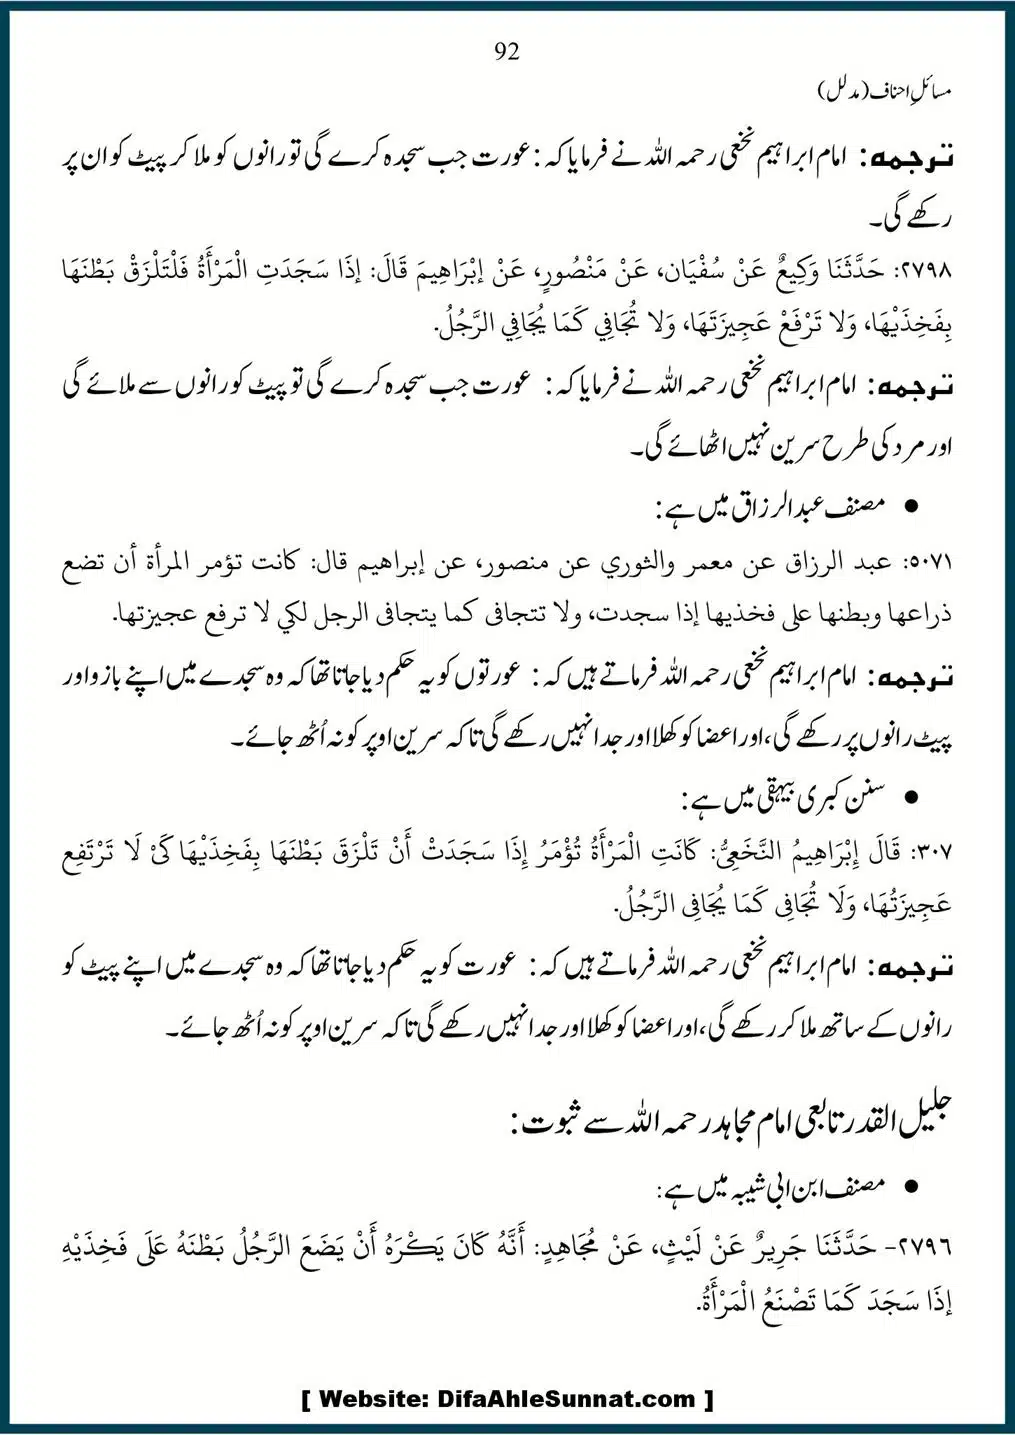 92
مسائلِ احناف (مدلل)
ترجمہ: امام ابراہیم نخعی رحمہ اللہ نے فرمایا کہ: عورت جب سجدہ کرے گی تو رانوں کو ملا کر پیٹ کو ان پر
رکھے گی۔
٢٧٩٨: حَدَّثَنَا وَكِيعٌ عَنْ سُفْيَان، عَنْ مَنْصُورٍ، عَنْ إبْرَاهِيمَ قَالَ: إذَا سَجَدَتِ الْمَرْأَةُ فَلْتَلْزَقْ بَطْنَهَا
بِفَخِذَيْهَا، وَلا تَرْفَعْ عَجِيزَتَهَا، وَلا تُجَافِي كَمَا يُجَافِي الرَّجُلُ.
ترجمہ: امام ابراہیم نخعی رحمہ اللہ نے فرمایا کہ: عورت جب سجدہ کرے گی تو پیٹ کو رانوں سے ملائے گی
اور مرد کی طرح سرین نہیں اٹھائے گی۔
• مصنف عبد الرزاق میں ہے:
٥٠٧١: عبد الرزاق عن معمر والثوري عن منصور، عن إبراهيم قال: كانت تؤمر المرأة أن تضع
ذراعها وبطنها على فخذيها إذا سجدت، ولا تتجافى كما يتجافى الرجل لكي لا ترفع عجيزتها.
ترجمہ: امام ابراہیم نخعی رحمہ اللہ فرماتے ہیں کہ: عورتوں کو یہ حکم دیا جاتا تھا کہ وہ سجدے میں اپنے بازو اور
پیٹ رانوں پر رکھے گی، اور اعضا کو کھلا اور جدا نہیں رکھے گی تاکہ سرین اوپر کو نہ اُٹھ جائے۔
• سنن کبری بیہقی میں ہے:
٣٠٧: قَالَ إِبْرَاهِيمُ النَّخَعِىُّ: كَانَتِ الْمَرْأَةُ تُؤْمَرُ إِذَا سَجَدَتْ أَنْ تَلْزَقَ بَطْنَهَا بِفَخِذَيْهَا كَىْ لَا تَرْتَفِعِ
عَجِيزَتُهَا، وَلَا تُجَافِى كَمَا يُجَافِى الرَّجُلُ.
ترجمہ: امام ابراہیم نخعی رحمہ اللہ فرماتے ہیں کہ: عورت کو یہ حکم دیا جاتا تھا کہ وہ سجدے میں اپنے پیٹ کو
رانوں کے ساتھ ملا کر رکھے گی، اور اعضا کو کھلا اور جدا نہیں رکھے گی تاکہ سرین اوپر کو نہ اُٹھ جائے۔
جلیل القدر تابعی امام مجاہد رحمہ اللہ سے ثبوت:
• مصنف ابن ابی شیبہ میں ہے:
٢٧٩٦- حَدَّثَنَا جَرِيرٌ عَنْ لَيْثٍ، عَنْ مُجَاهِدٍ: أَنَّهُ كَانَ يَكْرَهُ أَنْ يَضَعَ الرَّجُلُ بَطْنَهُ عَلَى فَخِذَيْهِ
إذَا سَجَدَ كَمَا تَصْنَعُ الْمَرْأَةُ.
[ Website: DifaAhleSunnat.com ]